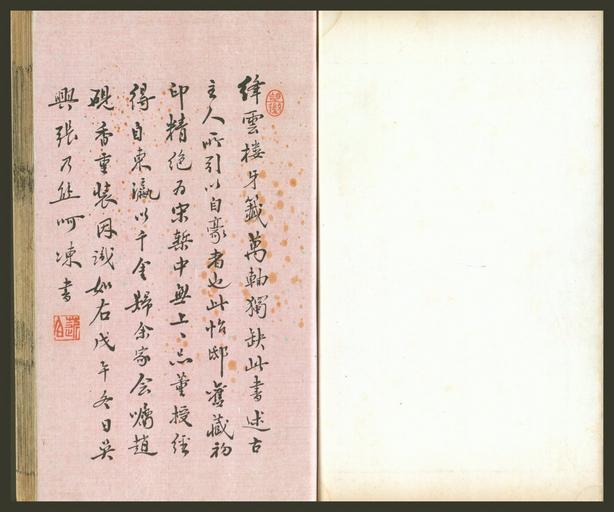 絳雲樓牙籤萬軸獨缺此書述古
主人所引以自豪者也此怡邸舊藏初
印精絕爲宋槧中無上上品董授經
得自東瀛以千金歸余家会嘱趙
硯香重裝因識如右戊午冬日吴
興張乃熊呵凍書